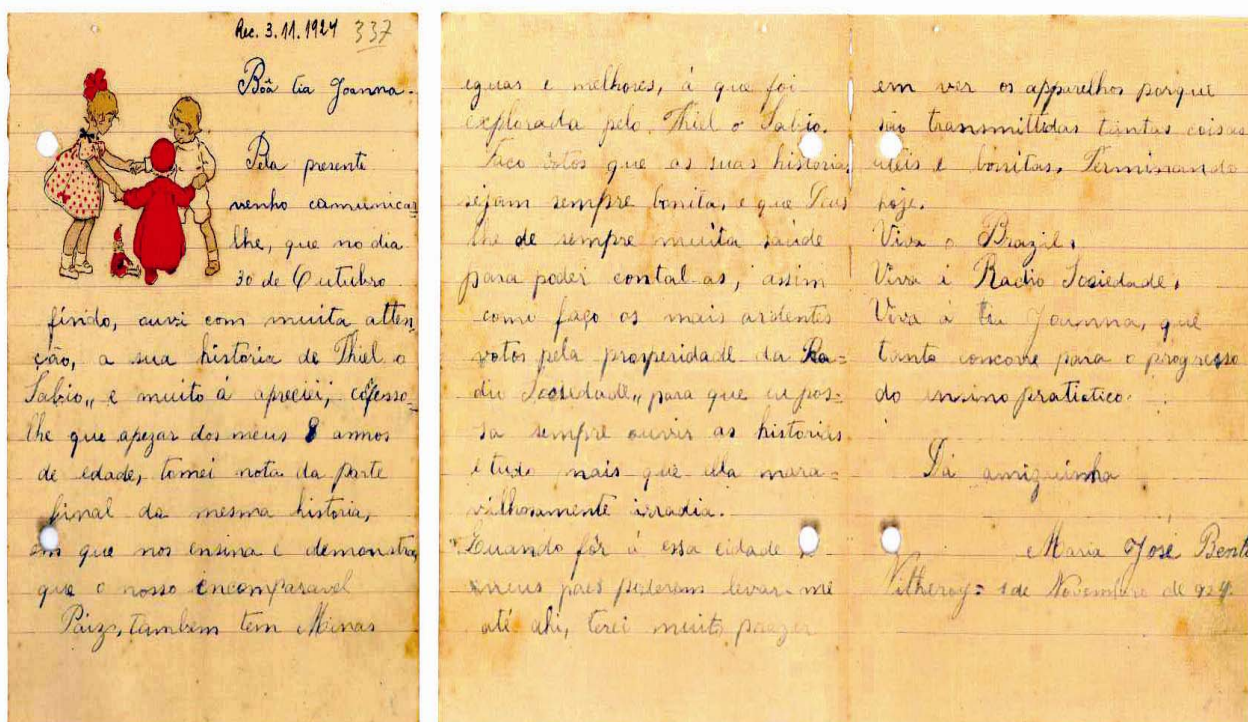 Rec. 3.11.1924 337
Bôa tia Joanna.
Pela presente
venho comunicar
lhe, que no dia
30 de Outubro
findo, ouvi com muita atten-
ção, a sua historia de Thiel o
Sabio,, e muito á apreciei; cofesso-
lhe que apezar dos meus 8 annos
de edade, tomei nota da parte
final da mesma historia,
em que nos ensina e demonstra,
que o nosso incomparavel
Paiz, tambem tem Minas
eguas e melhores, á que foi
explorada pelo Thiel o Sabio.
Faço votos que as suas historias
sejam sempre bonita, e que Deus
lhe de sempre muita saúde
para poder contal as, assim
como faço os mais ardentes
votos pela prosperidade da Ra-
dio Sosiedade,, para que eu pos-
sa sempre ouvir as historias
e tudo mais que ella mara-
vilhosamente irradia.
Quando fôr á essa cidade,
meus paes poderem levar-me
até ahi, terei muito prazer
em ver os apparelhos porque
são transmittidas tantas coisas
uteis e bonitas. Terminando
hoje.
Viva o Brazil,
Viva á Radio Sosiedade,
Viva á tia Joanna, que
tanto concore para o progresso
do ensino pratictico.
Dá amiguinha
Maria José Bent
Nitheroy= 1 de Novembro de 924.